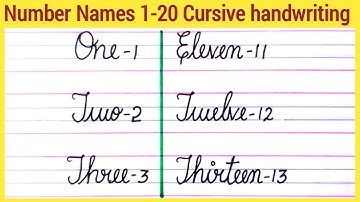 Number Names 1-20 Cursive handwriting
One-1 Eleven-11
Two-2 Twelve-12
Three-3 Thirteen-13